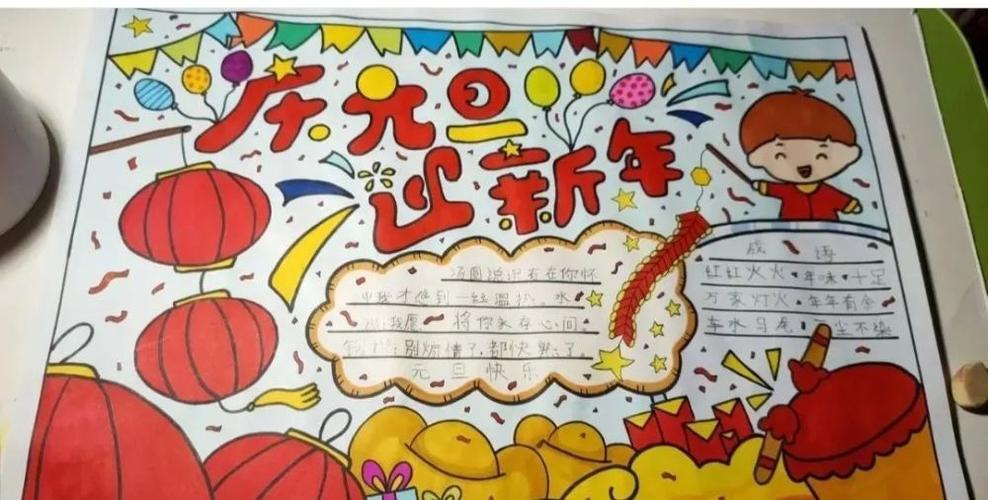 庆元旦
迎新年
汤圆说只有在你怀
中我才感到一丝温热。水
说:我愿 将你永存心间
锅说:别煽情了,都快熟了。
元旦快乐
成 语
红红火火 年味十足
万家灯火 年年有余
车水马龙 一尘不染